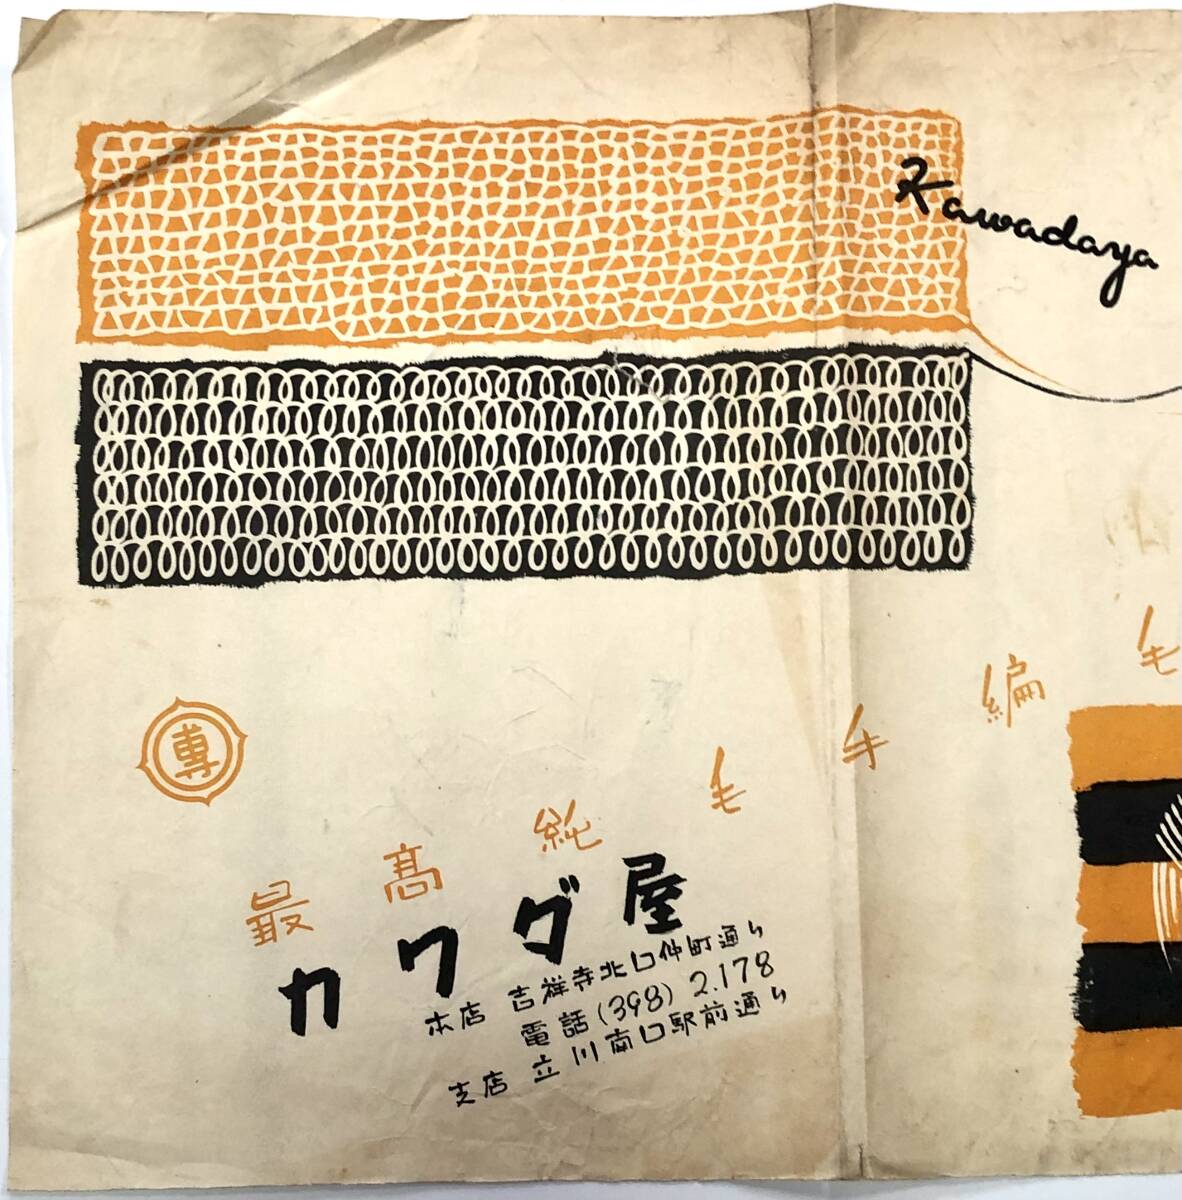 Kawadaya
專
最高純毛手編毛
カワダ屋
本店 吉祥寺北口仲町通り
電話(398)2.178
支店 立川南口駅前通り